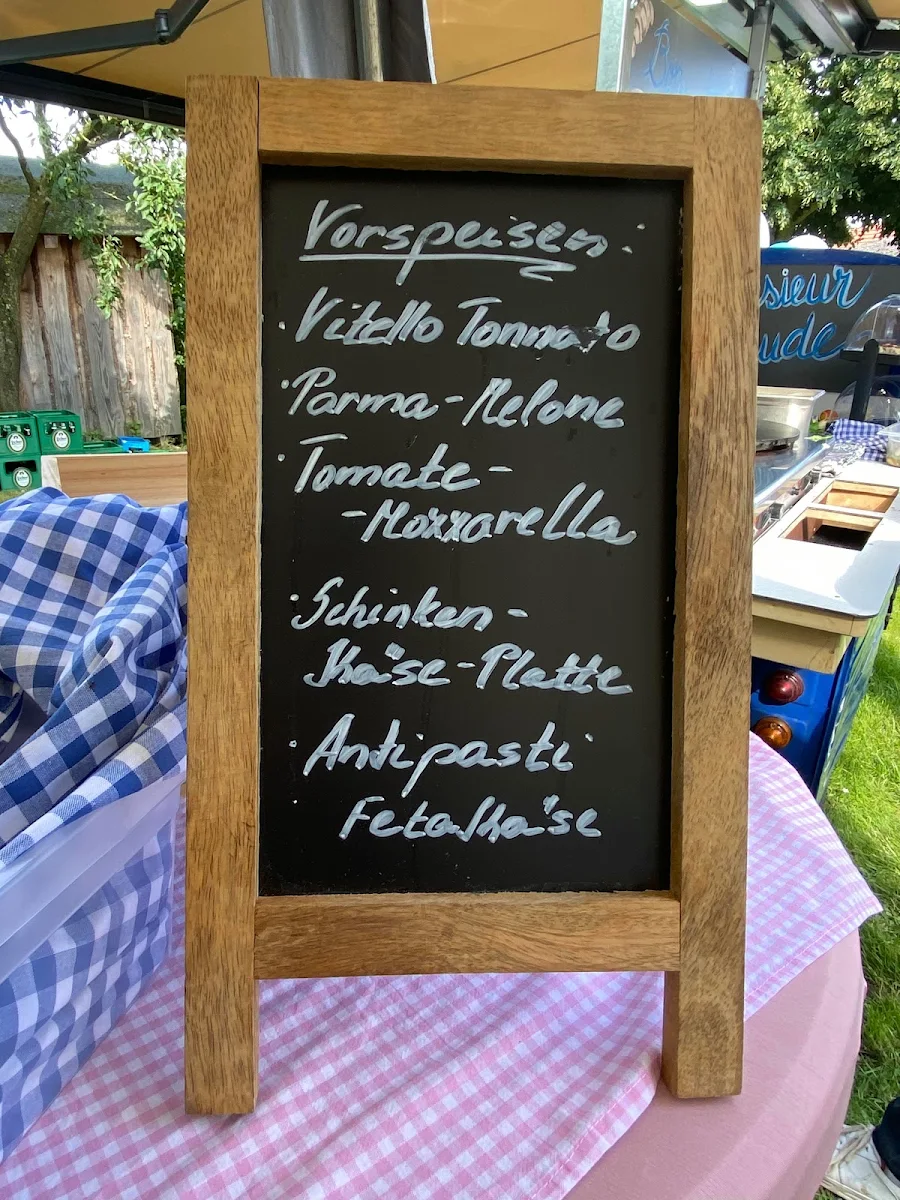 Vorspeisen:
· Vitello Tonnato
· Parma-Melone
· Tomate-
-Mozzarella
· Schinken-
Käse-Platte
· Antipasti
· Fetakäse
sieur
ude